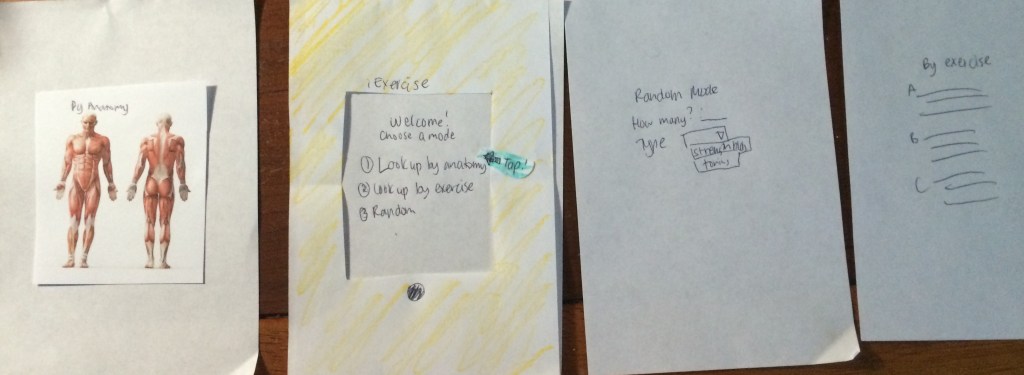 By Anatomy
iExercise
Welcome!
Choose a mode
① Look up by anatomy
Tap!
② Look up by exercise
③ Random
Random Mode
How many? : __
Type
strengthen
By exercise
A
B
C